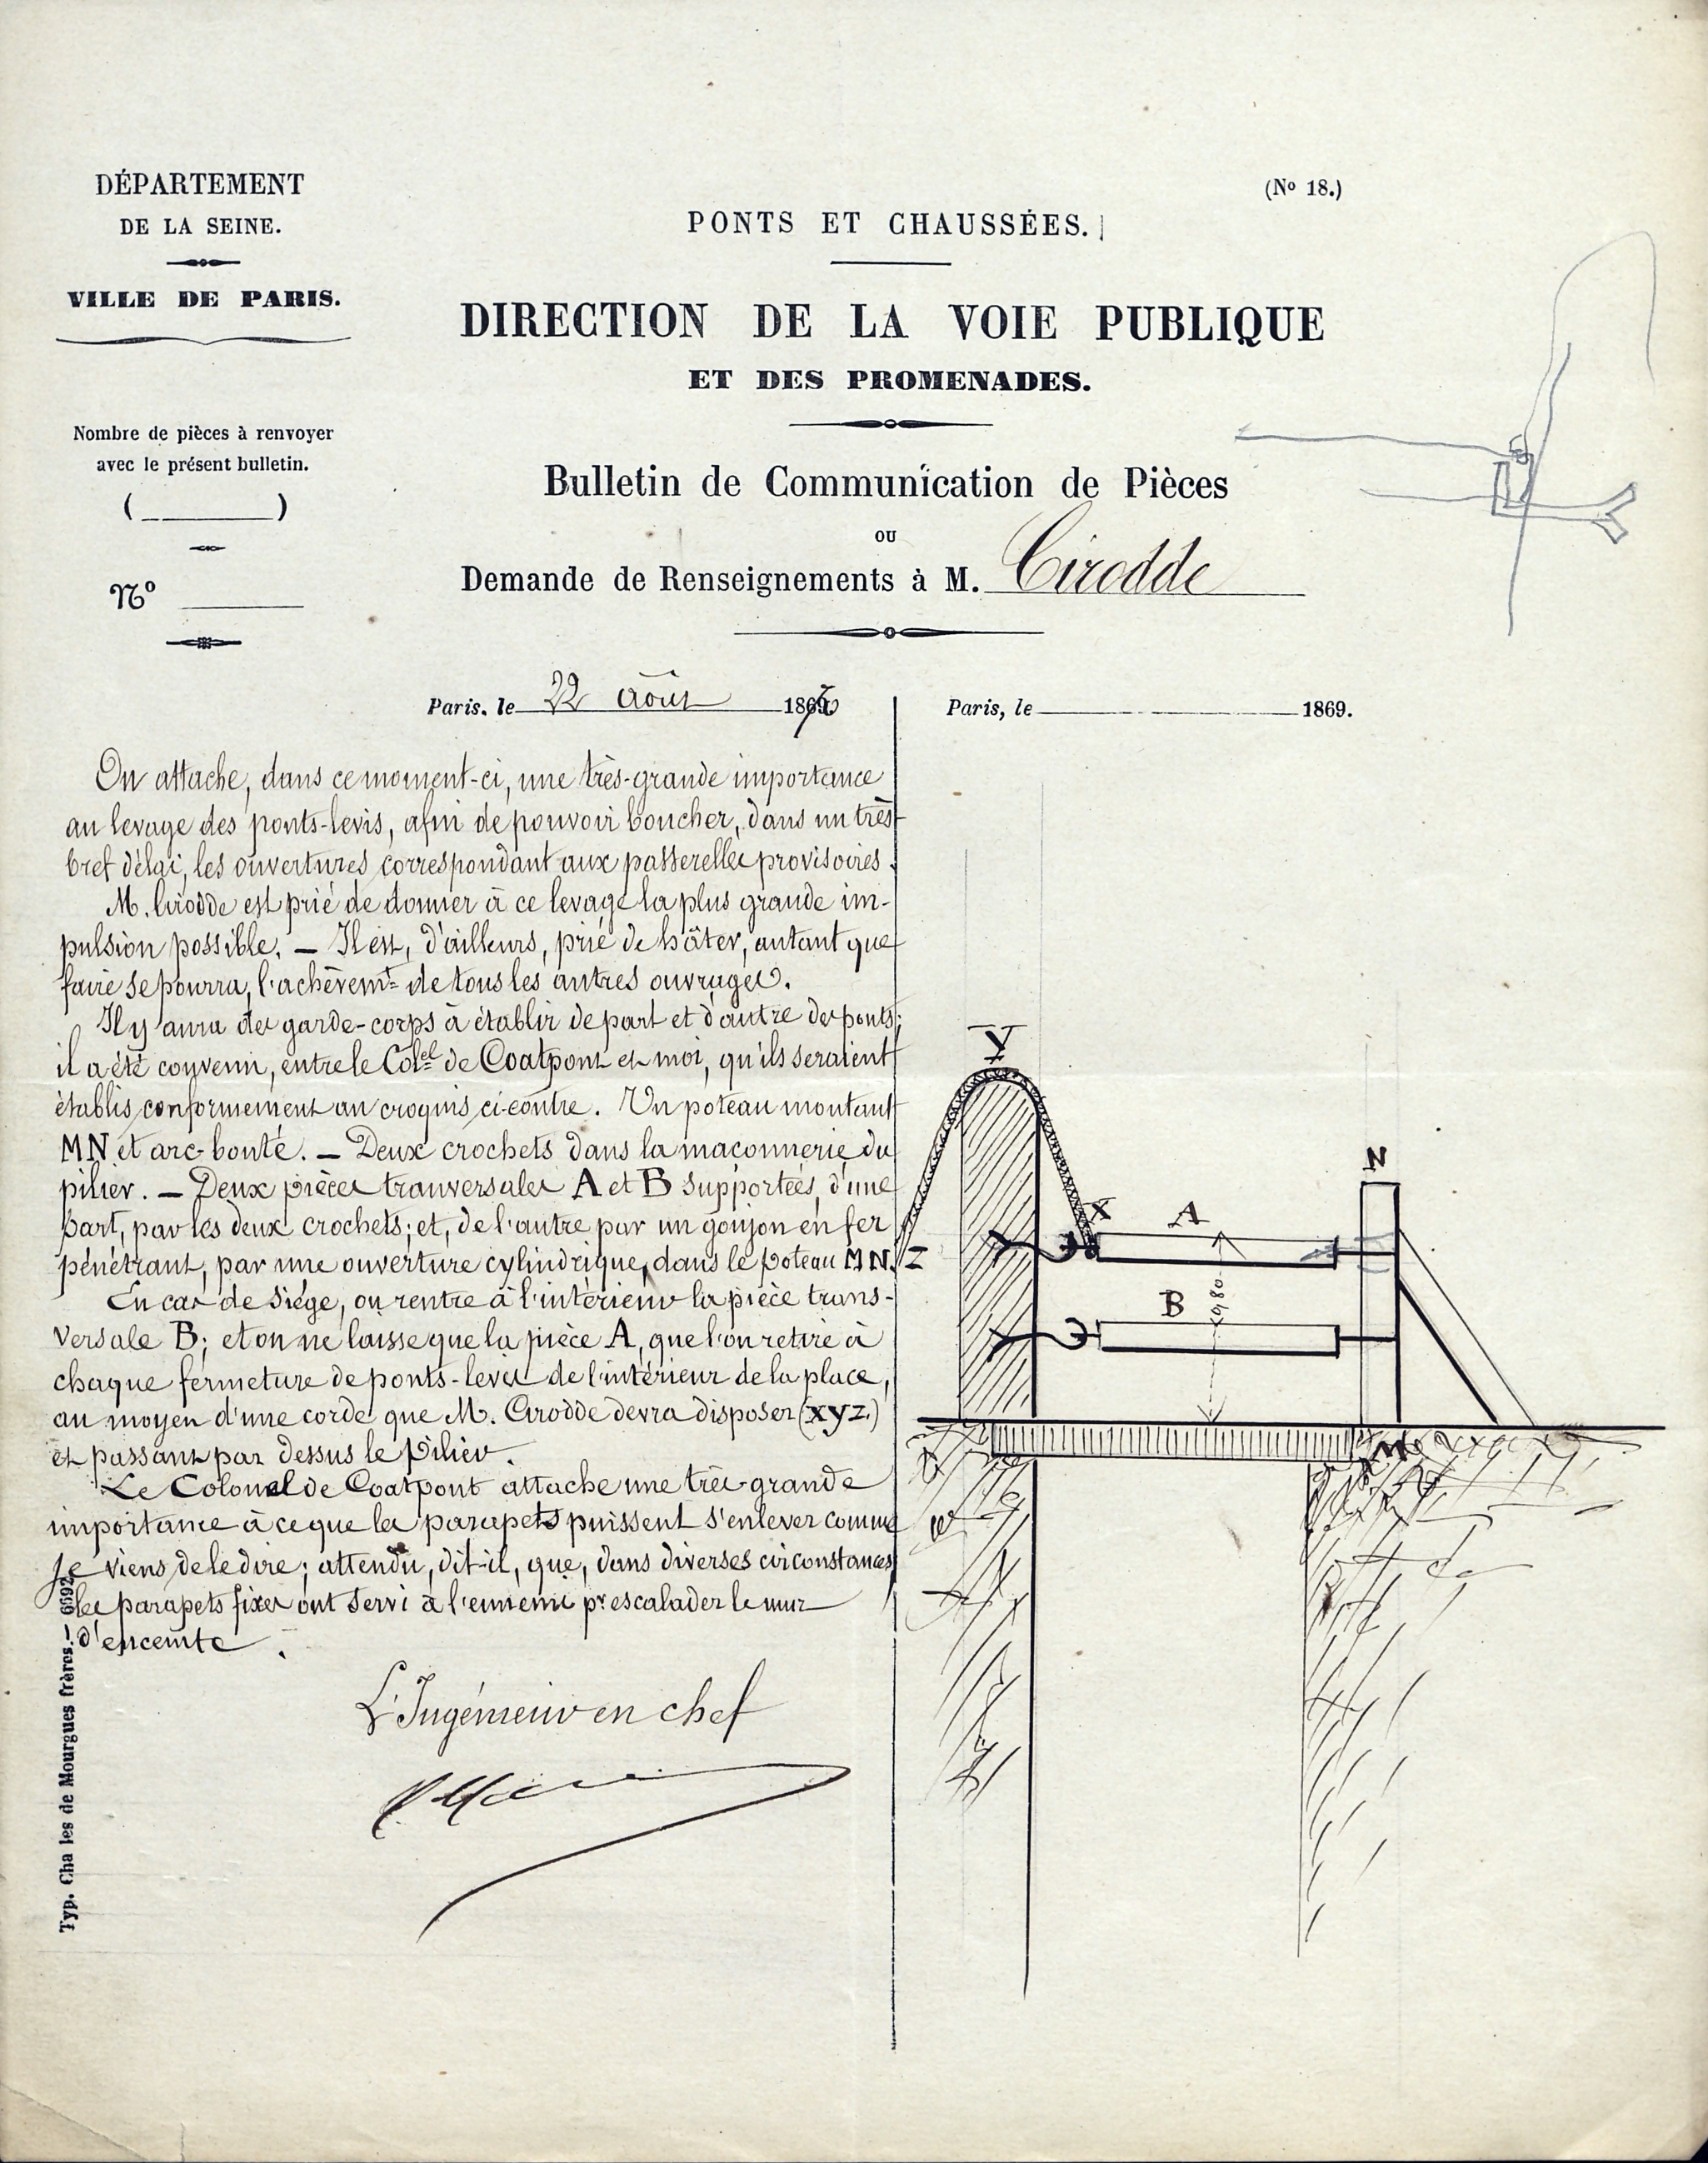 DÉPARTEMENT
DE LA SEINE.
VILLE DE PARIS.
Nombre de pièces à renvoyer
avec le présent bulletin.
(_______)
No
(No 18.)
PONTS ET CHAUSSÉES.
DIRECTION DE LA VOIE PUBLIQUE
ET DES PROMENADES.
Bulletin de Communication de Pièces
OU
Demande de Renseignements à M. Cirodde
Paris, le 22 Août 1870
On attache, dans ce moment-ci, une très-grande importance
au levage des ponts-levis, afin de pouvoir boucher, dans un très
bref délai, les ouvertures correspondant aux passerelles provisoires.
M. Cirodde est prié de donner à ce levage la plus grande im-
pulsion possible. — Il est, d'ailleurs, prié de hâter, autant que
faire se pourra, l'achèvemt de tous les autres ouvrages.
Il y aura des garde-corps à établir de part et d'autre des ponts;
il a été convenu, entre le Colel de Coatpont et moi, qu'ils seraient
établis conformément au croquis ci-contre. Un poteau montant
MN et arc-bouté. — Deux crochets dans la maçonnerie du
pilier. — Deux pièces tranversales A et B supportées, d'une
part, par les deux crochets; et, de l'autre par un goujon en fer
pénétrant, par une ouverture cylindrique, dans le poteau MN.
En cas de siége, on rentre à l'intérieur la pièce trans-
versale B; et on ne laisse que la pièce A, que l'on retire à
chaque fermeture de ponts-levis de l'intérieur de la place,
au moyen d'une corde que M. Cirodde devra disposer (xyz.)
et passant par dessus le Pilier.
Le Colonel de Coatpont attache une très-grande
importance à ce que les parapets puissent s'enlever comme
je viens de le dire; attendu, dit-il, que, dans diverses circonstances
les parapets fixes ont servi à l'ennemi pr escalader le mur
d'enceinte.
L'Ingénieur en chef
Typ. Cha les de Mourgues frères. — 6692.
Paris, le 1869.
Y
N
X
A
Z
B
0,80
M